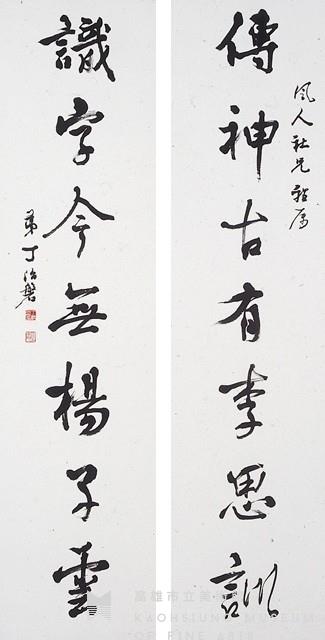 傳神古有李思訓
風人社兄雅屬
識字今無楊子雲
弟丁治磐
高雄市立美術館
KAOHSIUNG MUSEUM
OF FINE ARTS